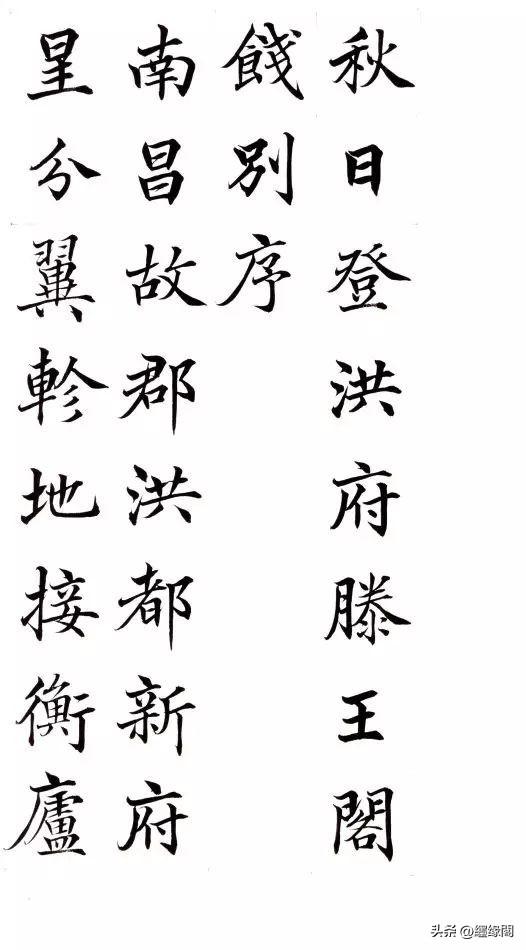 秋日登洪府滕王閣
餞別序
南昌故郡洪都新府
星分翼軫地接衡廬
头条 @纒缘閣